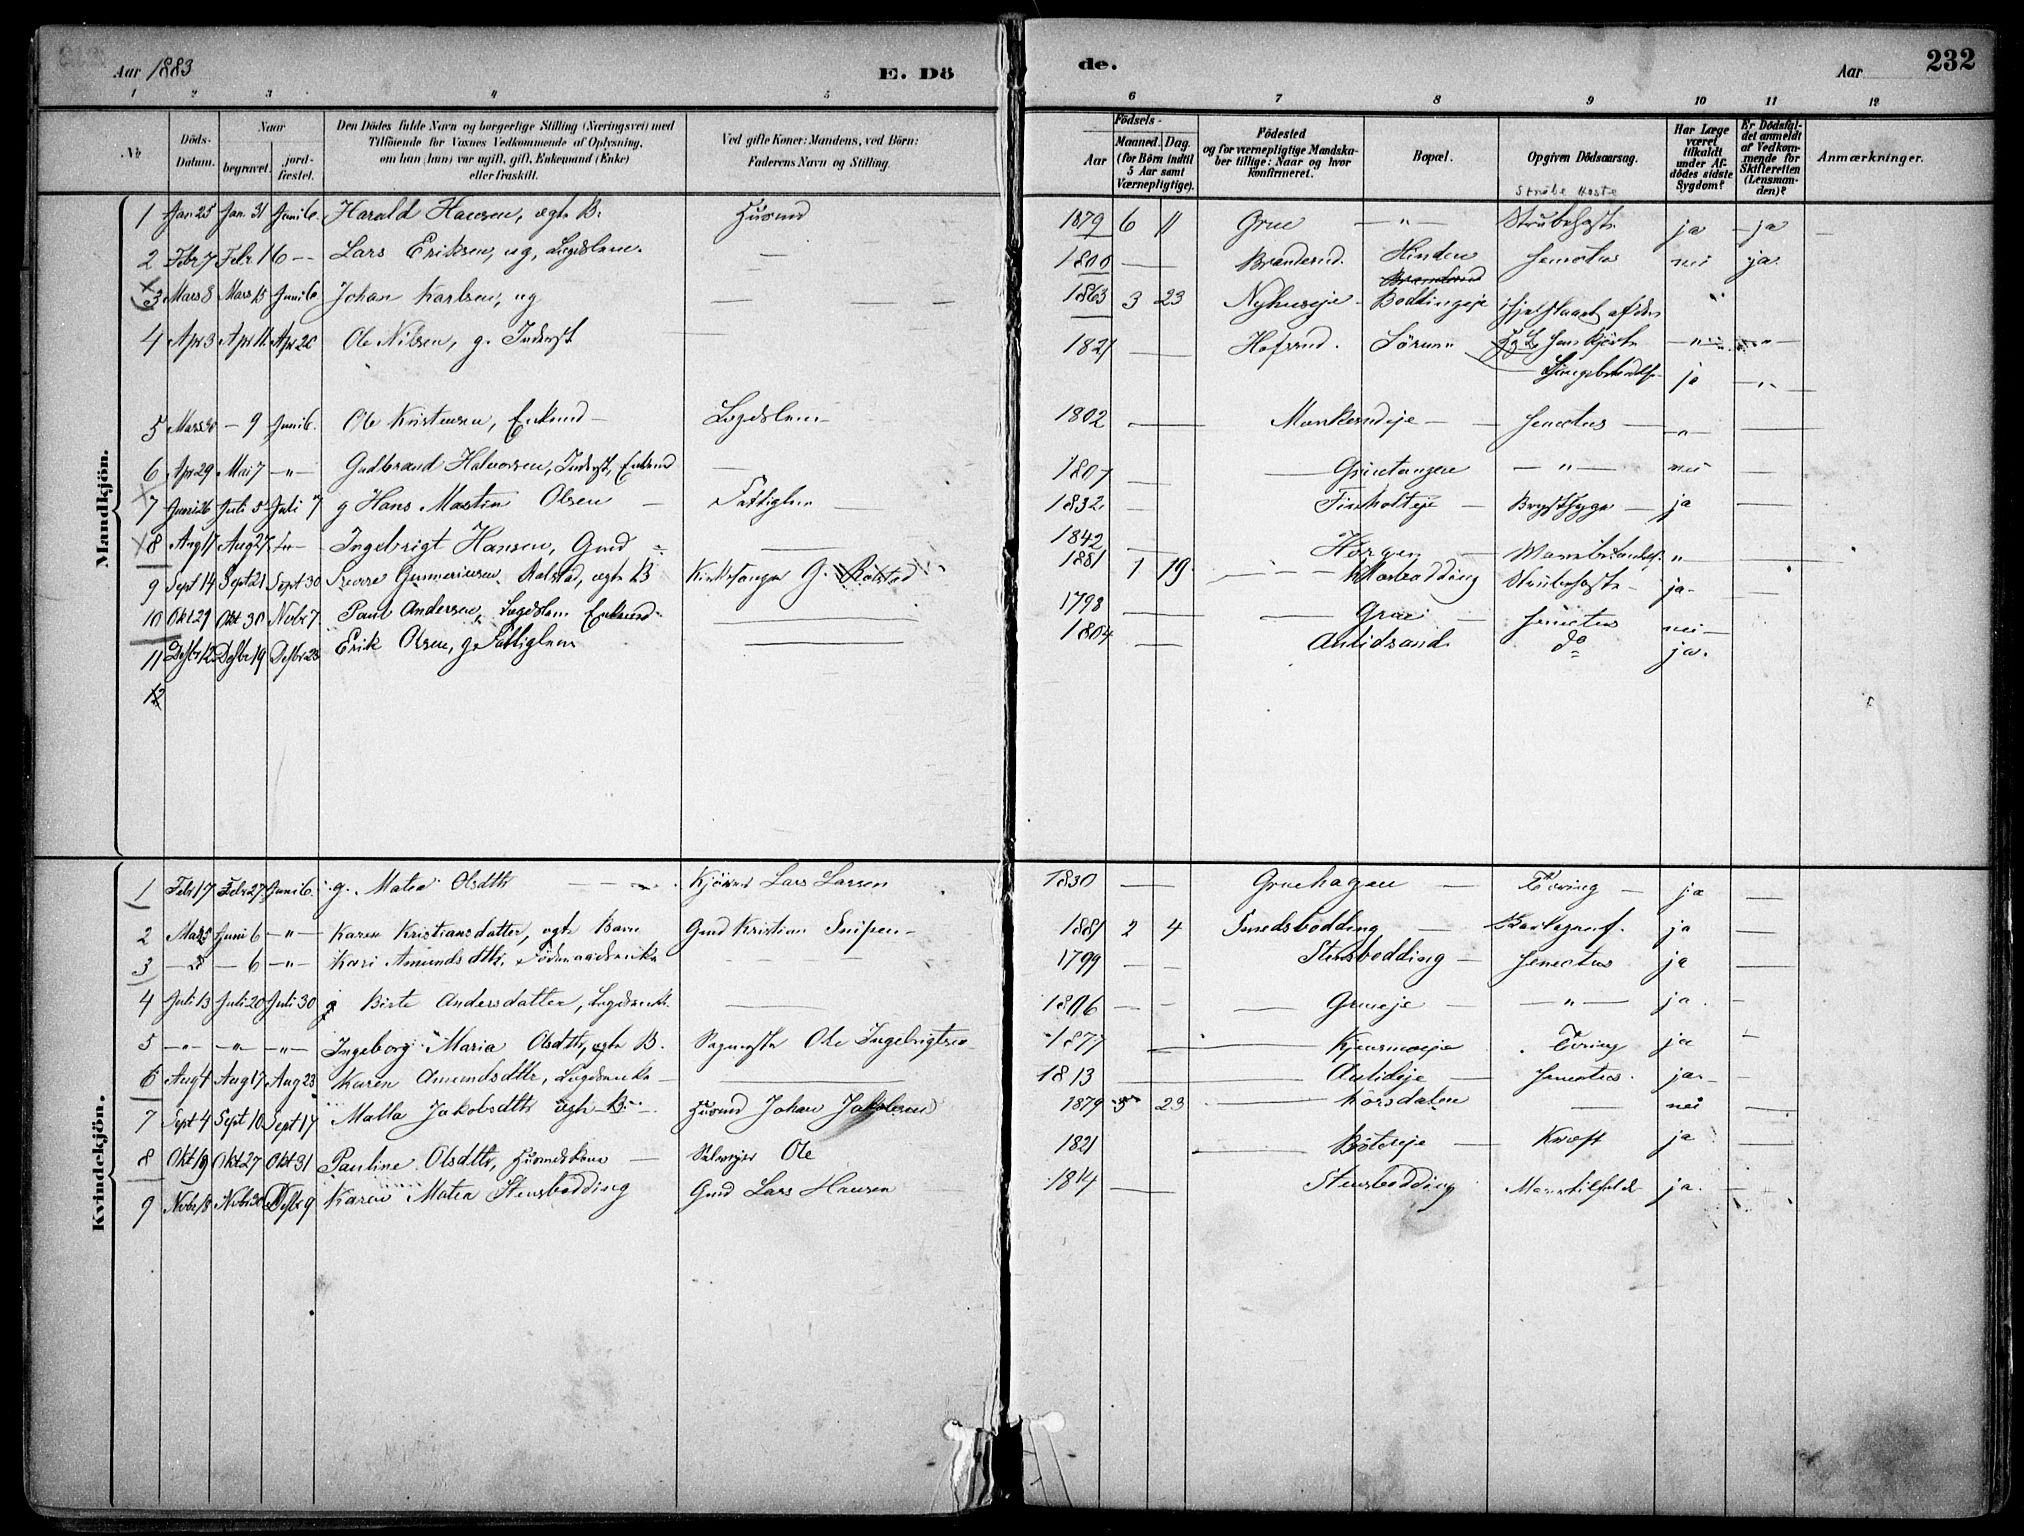 Aar 1883 E. Dö
de. Aar 232
1 2 3 4 5
6 7 8 9 10 11 12
No
Döds-Datum.
Naar begravet. jordfæstet.
Den Dödes fulde Navn og borgerlige Stilling (Næringsvei) med Tilföiende for Voxnes Vedkommende af Oplysning, om han (hun) var ugift, gift, Enkemand (Enke) eller fraskilt.
Ved gifte Koner: Mandens, ved Börn: Faderens Navn og Stilling.
Födsels-
Aar
Maaned. Dag.
(for Börn indtil 5 Aar samt Værnepligtige).
Födested og for værnepligtige Mandskaber tillige: Naar og hvor konfirmeret.
Bopæl.
Opgiven Dödsaarsag.
Har Læge været tilkaldt under Afdödes sidste Sygdom?
Er Dödsfaldet anmeldt af Vedkommende for Skifteretten (Lensmanden)?
Anmærkninger.
Mandkjön.
Strube Hoste
1 Jan 25 Jan. 31 Juni 6. Harald Hansen, ægte B. Husmd 1879 6 11 Grue — " — Strubehoste ja — ja —
2 Febr 7 Febr 16 — Lars Eriksen, ug, Lægdslem. — 1800 — Branderud. Hinden Senectus nei ja.
3 Mars 8 Mars 15 Juni 6 Johan Karlsen, ug — 1863 3 23 Nyhuseje Boddingeje ihjelslaaet af
4 Apr 3 Apr 11 Apr 20 Ole Nilsen, g. Inderst 1821 — Hofsrud. Lörum
ja — " —
5 Mars 30 — 9 Juni 6. Ole Kristensen, Enkmd — Lægdslem 1802 — Monkerudeje — Senectus — "
6 Apr 29 Mai 7 — " — Gudbrand Halvorsen, Inderst, Enkmd — 1807 — Grintangen — " — nei —
7 Juni 26 Juli 5 Juli 7 g Hans Martin Olsen — Fattiglem 1832 — Finholteje — Brystsyge — ja —
8 Aug 17 Aug 27 — Ingebrigt Hansen, Gmd — 1842 — Horgen — "
9 Sept 14 Sept 21 Sept 30 Sverre Gunneriusen Rolstad, ægte B Kirkesanger G. Rolstad 1881 1 19 — Klokbodding Strubehoste — ja —
10 Okt 29 Okt 30 Nobr 7 Paul Andersen, Lægdslem Enkmd — 1798 — Grue — Senectus nei —
11 Desbr 12 Desbr 19 Desbr 23 Erik Olsen, g. Fattiglem — 1804 — Aulidsand do ja.
12
Kvindekjön.
1 Febr 17 Febr 27 Juni 6. g. Matea Olsdtr — Kjörmd Lars Larsen 1830 — Gruehagen — Tæring — ja —
2 Mars 5 Juni 6 — " — Karen Kristiansdatter, ægte Barn Gmd Kristian Snipen — 1881 2 4 Smedsbodding — ja —
3 — — 6 — " — Kari Amundsdtr. Föderaadsenke — 1799 — Stensbodding — Senectus ja —
4 Juli 13 Juli 20 Juli 30 g Birte Andersdatter, Lægdsenke — 1806 — Grueeje — " — ja. —
5 — " — " — " — Ingeborg Maria Olsdtr, ægte B. Sagmester Ole Ingebrigtsen 1877 — Kjensmoeje Tæring ja —
6 Aug 4 Aug 17 Aug 23 Karen Amundsdtr, Lægdsenke — 1813 — Aulieje — Senectus. ja. —
7 Sept 4 Sept 10 Sept 17 Malla Jakobsdtr ægte B. — Husmd Johan Jakobsen 1879 5 23 — Korsdalen — nei —
8 Okt 19 Okt 27 Okt 31 Pauline Olsdtr, Husmdskone — Selvejer Ole 1821 — Böleeje — Kræft ja —
9 Nobr 18 Nobr 30 Desbr 9 Karen Matea Stensbodding Gmd Lars Hansen 1814 — Stensbodding Mavetilfælde ja. —